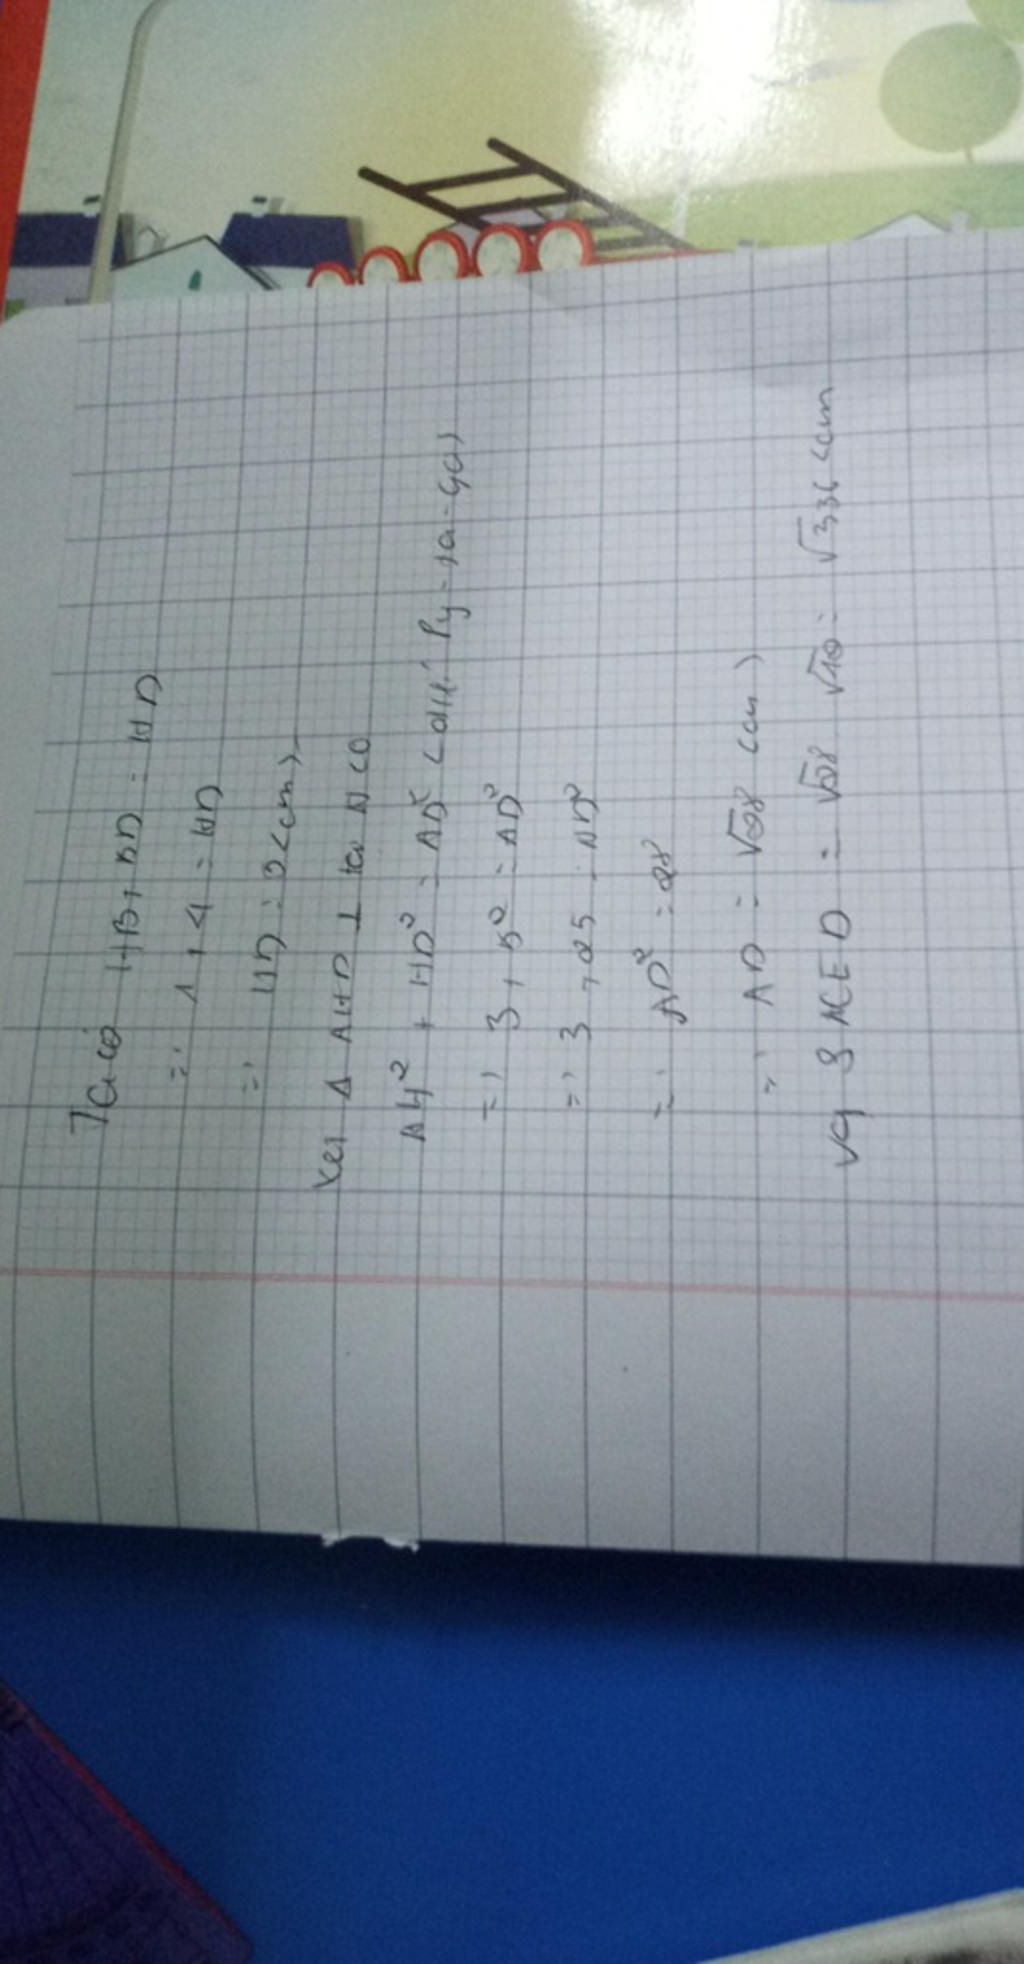 Ta có HB + BD = HD
=> 1 + 4 = HD
=> HD = 5 (cm)
Xét Δ AHD ⊥ tại H có
AH² + HD² = AD² (đlí Py-ta-go)
=> 3 + 5² = AD²
=> 3 + 25 = AD²
=> AD² = 28
=> AD = √28 (cm)
Vậy S ACED = √28 √12 = √336 (cm